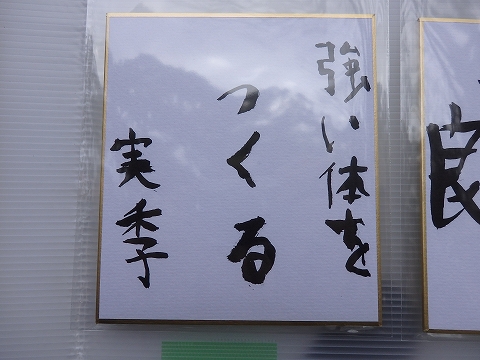 強い体を
つくる
実季
良